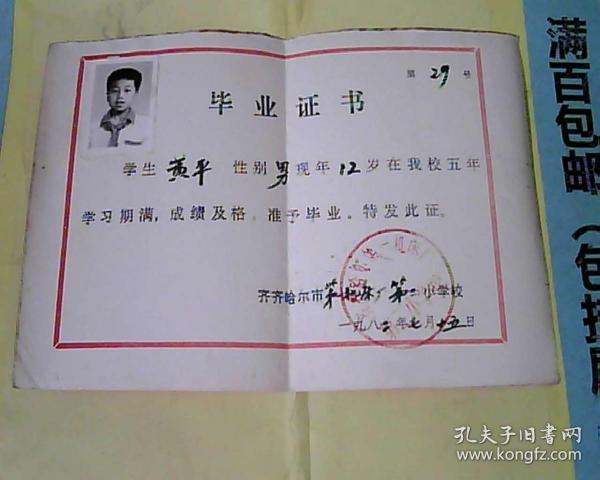 第 29 号
毕业证书
学生 黄平 性别 男 现年 12 岁在我校五年
学习期满，成绩及格。准予毕业。特发此证。
齐齐哈尔市第一机床厂第二小学校
一九八二年七月十五日
满百包邮（包挂刷
孔夫子旧书网
www.kongfz.com